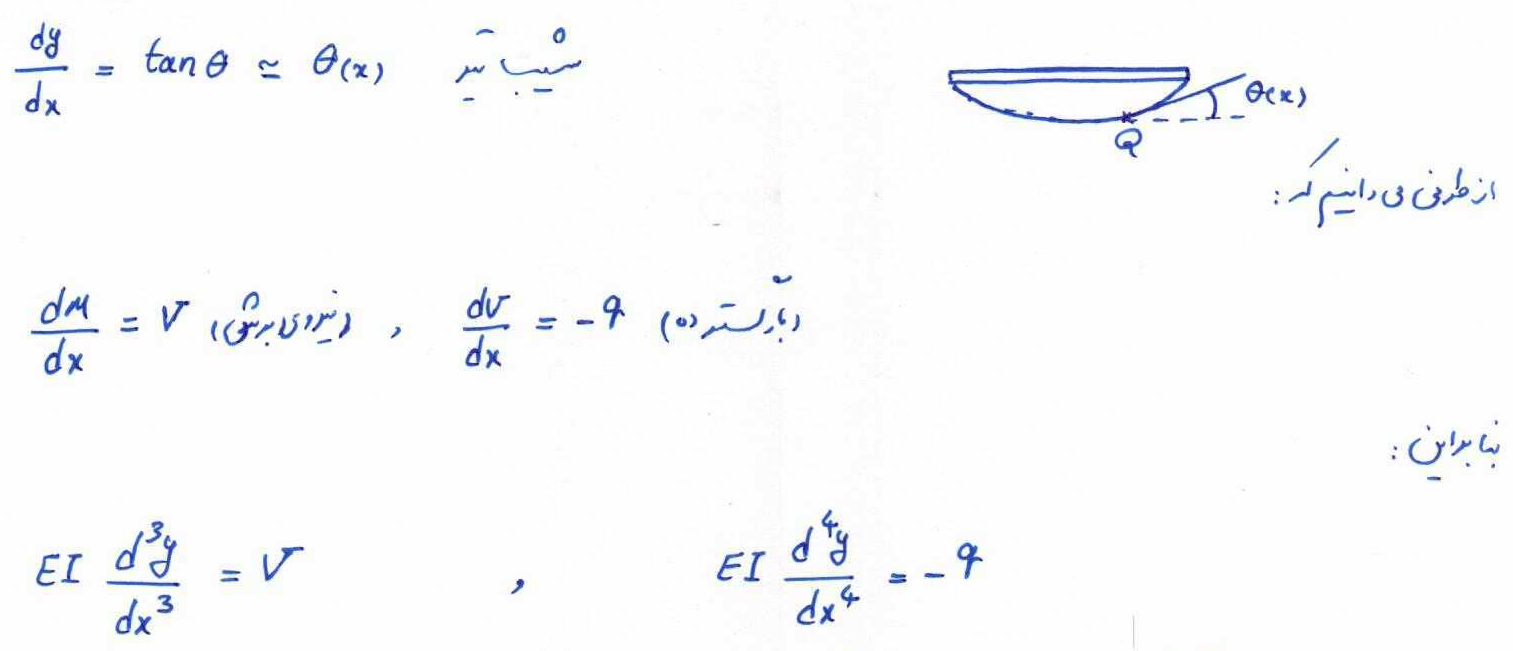 dy/dx = tan θ ≃ θ(x) شیب تیر
θ(x)
Q
از طرفی می دانیم که :
dM/dx = V (نیروی برشی) , dV/dx = -q (بار گسترده)
بنابراین :
EI d³y/dx³ = V , EI d⁴y/dx⁴ = -q